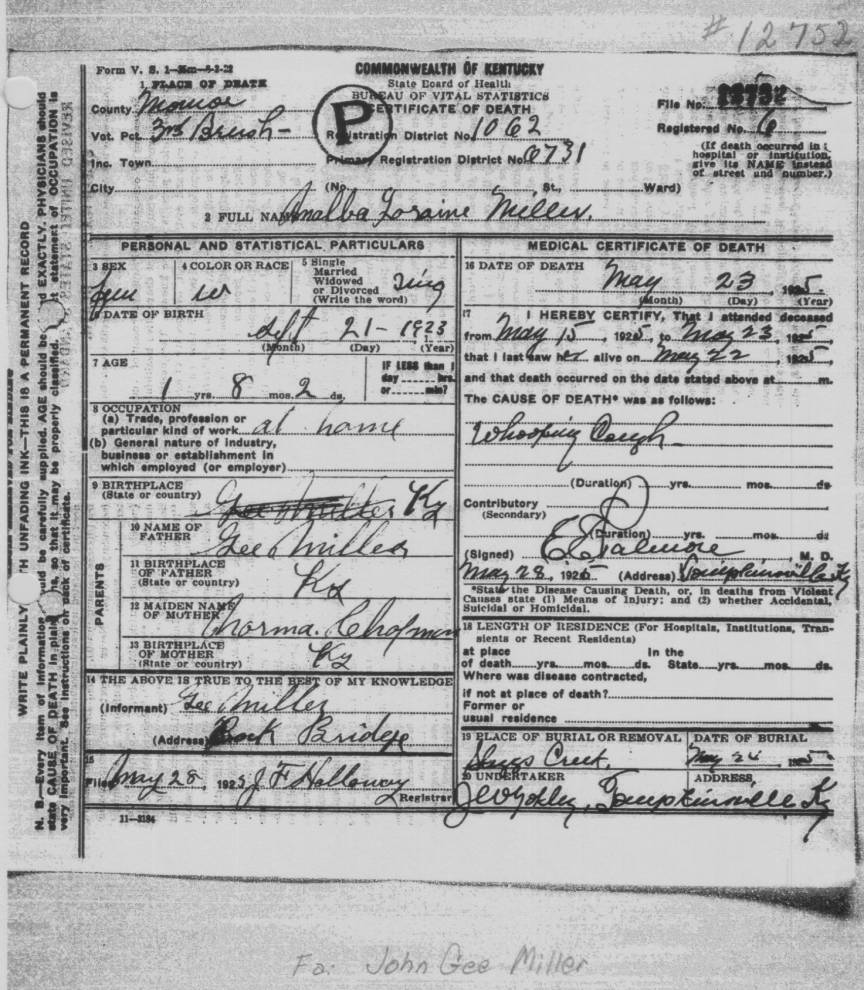 # 12752
Form V. S. 1
COMMONWEALTH OF KENTUCKY
State Board of Health
BUREAU OF VITAL STATISTICS
CERTIFICATE OF DEATH
1 PLACE OF DEATH
County Monroe
Vot. Pct. Brush
Inc. Town
City (No. , St., Ward)
P
Registration District No. 1062
Primary Registration District No. 6731
File No.
Registered No. 6
(If death occurred in a
hospital or institution,
give its NAME instead
of street and number.)
2 FULL NAME Analba Loraine Miller.
PERSONAL AND STATISTICAL PARTICULARS
3 SEX Fem
4 COLOR OR RACE W
5 Single
Married
Widowed
or Divorced
(Write the word) Sing
6 DATE OF BIRTH
Sept 21 - 1923
(Month) (Day) (Year)
7 AGE
1 yrs. 8 mos. 2 ds.
IF LESS than 1
day hrs.
or min?
8 OCCUPATION
(a) Trade, profession or
particular kind of work at home
(b) General nature of industry,
business or establishment in
which employed (or employer)
9 BIRTHPLACE
(State or country) Gee Miller Ky
PARENTS
10 NAME OF
FATHER Gee Miller
11 BIRTHPLACE
OF FATHER
(State or country) Ky
12 MAIDEN NAME
OF MOTHER Norma. Chapman
13 BIRTHPLACE
OF MOTHER
(State or country) Ky
14 THE ABOVE IS TRUE TO THE BEST OF MY KNOWLEDGE
(Informant) Gee Miller
(Address) Rock Bridge
15
Filed May 28, 1925 J F Holloway
Registrar
11-3184
MEDICAL CERTIFICATE OF DEATH
16 DATE OF DEATH
May 23, 1925.
(Month) (Day) (Year)
17 I HEREBY CERTIFY, That I attended deceased
from May 15, 1925, to May 23, 1925
that I last saw her alive on May 22, 1925
and that death occurred on the date stated above at m.
The CAUSE OF DEATH* was as follows:
Whooping Cough
(Duration) yrs. mos. ds
Contributory
(Secondary)
(Duration) yrs. mos. ds
(Signed) E E Palmore, M. D.
May 28, 1925 (Address) Tompkinsville Ky
*State the Disease Causing Death, or, in deaths from Violent
Causes state (1) Means of Injury; and (2) whether Accidental,
Suicidal or Homicidal.
18 LENGTH OF RESIDENCE (For Hospitals, Institutions, Tran-
sients or Recent Residents)
at place In the
of death yrs. mos. ds. State yrs. mos. ds.
Where was disease contracted,
if not at place of death?
Former or
usual residence
19 PLACE OF BURIAL OR REMOVAL
Skaggs Creek.
DATE OF BURIAL
May 24 1925
20 UNDERTAKER
J W Yokley,
ADDRESS
Tompkinsville Ky
WRITE PLAINLY WITH UNFADING INK—THIS IS A PERMANENT RECORD
N. B.—Every item of information should be carefully supplied. AGE should be stated EXACTLY. PHYSICIANS should
state CAUSE OF DEATH in plain terms, so that it may be properly classified. statement of OCCUPATION is
very important. See instructions on back of certificate.
Fa: John Gee Miller